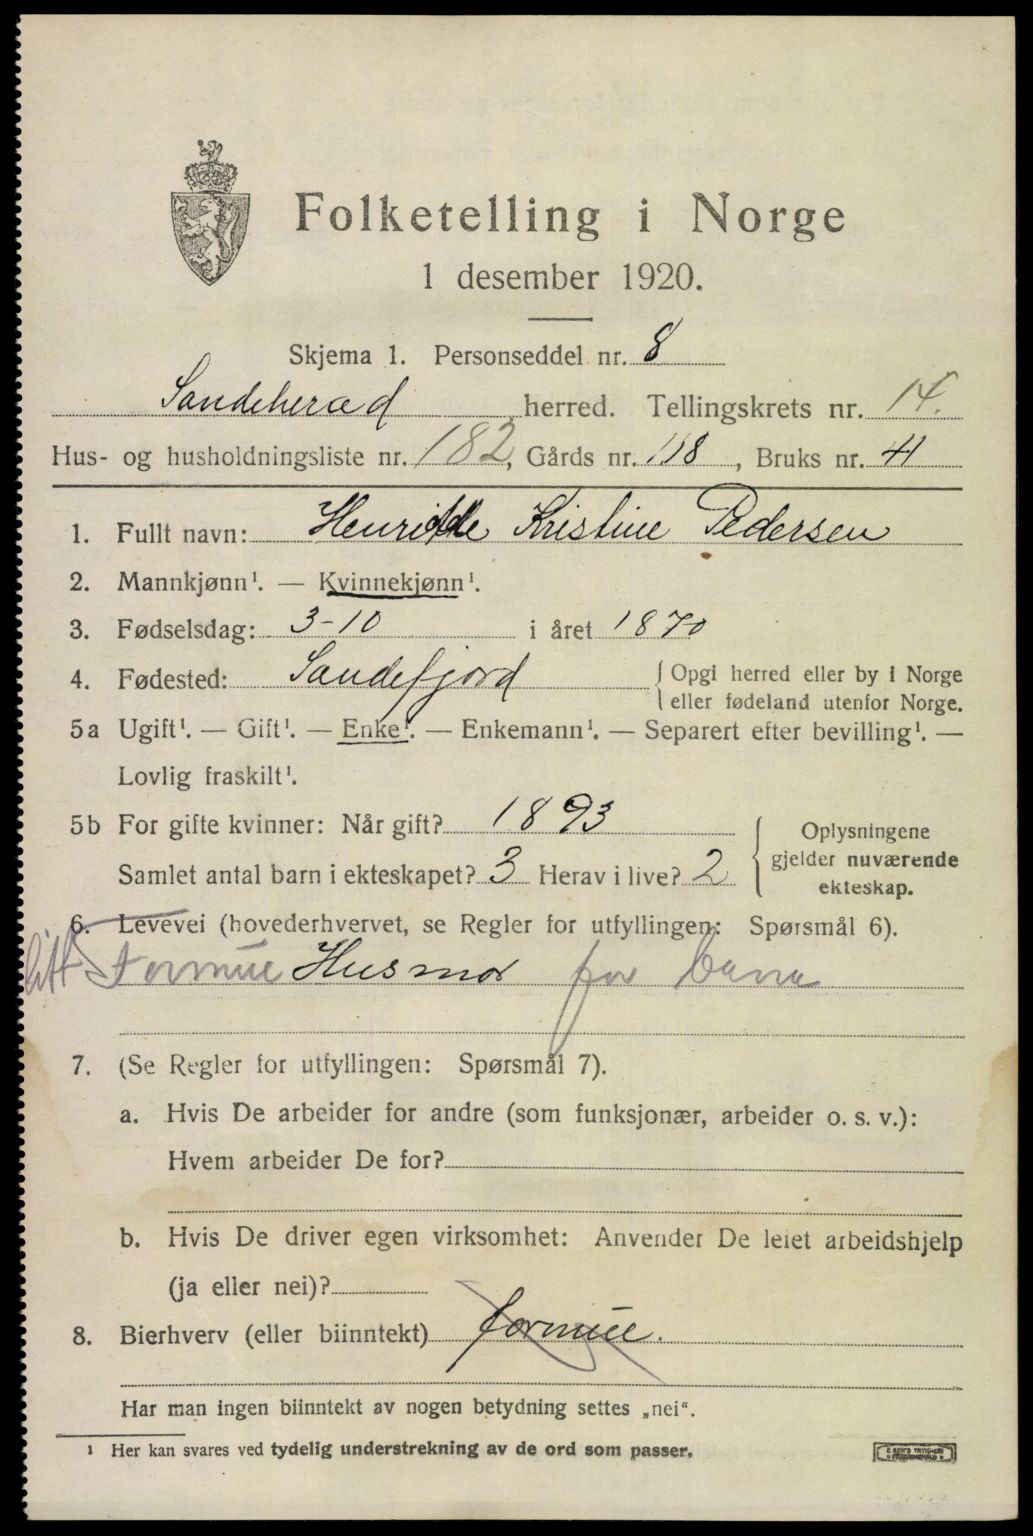 Folketelling i Norge
1 desember 1920.
Skjema 1. Personseddel nr. 8
Sandeherad herred. Tellingskrets nr. 14.
Hus- og husholdningsliste nr. 182, Gårds nr. 118, Bruks nr. 41
1. Fullt navn: Henriette Kristine Pedersen
2. Mannkjønn¹. — Kvinnekjønn¹.
3. Fødselsdag: 3-10 i året 1870
4. Fødested: Sandefjord { Opgi herred eller by i Norge
eller fødeland utenfor Norge.
5a Ugift¹. — Gift¹. — Enke¹. — Enkemann¹. — Separert efter bevilling¹. —
Lovlig fraskilt¹.
5b For gifte kvinner: Når gift? 1893
Samlet antal barn i ekteskapet? 3 Herav i live? 2
Oplysningene
gjelder nuværende
ekteskap.
6. Levevei (hovederhvervet, se Regler for utfyllingen: Spørsmål 6).
litt Formue Husmor for barna
7. (Se Regler for utfyllingen: Spørsmål 7).
a. Hvis De arbeider for andre (som funksjonær, arbeider o. s. v.):
Hvem arbeider De for?
b. Hvis De driver egen virksomhet: Anvender De leiet arbeidshjelp
(ja eller nei)?
8. Bierhverv (eller biinntekt) formue.
Har man ingen biinntekt av nogen betydning settes „nei".
¹ Her kan svares ved tydelig understrekning av de ord som passer.